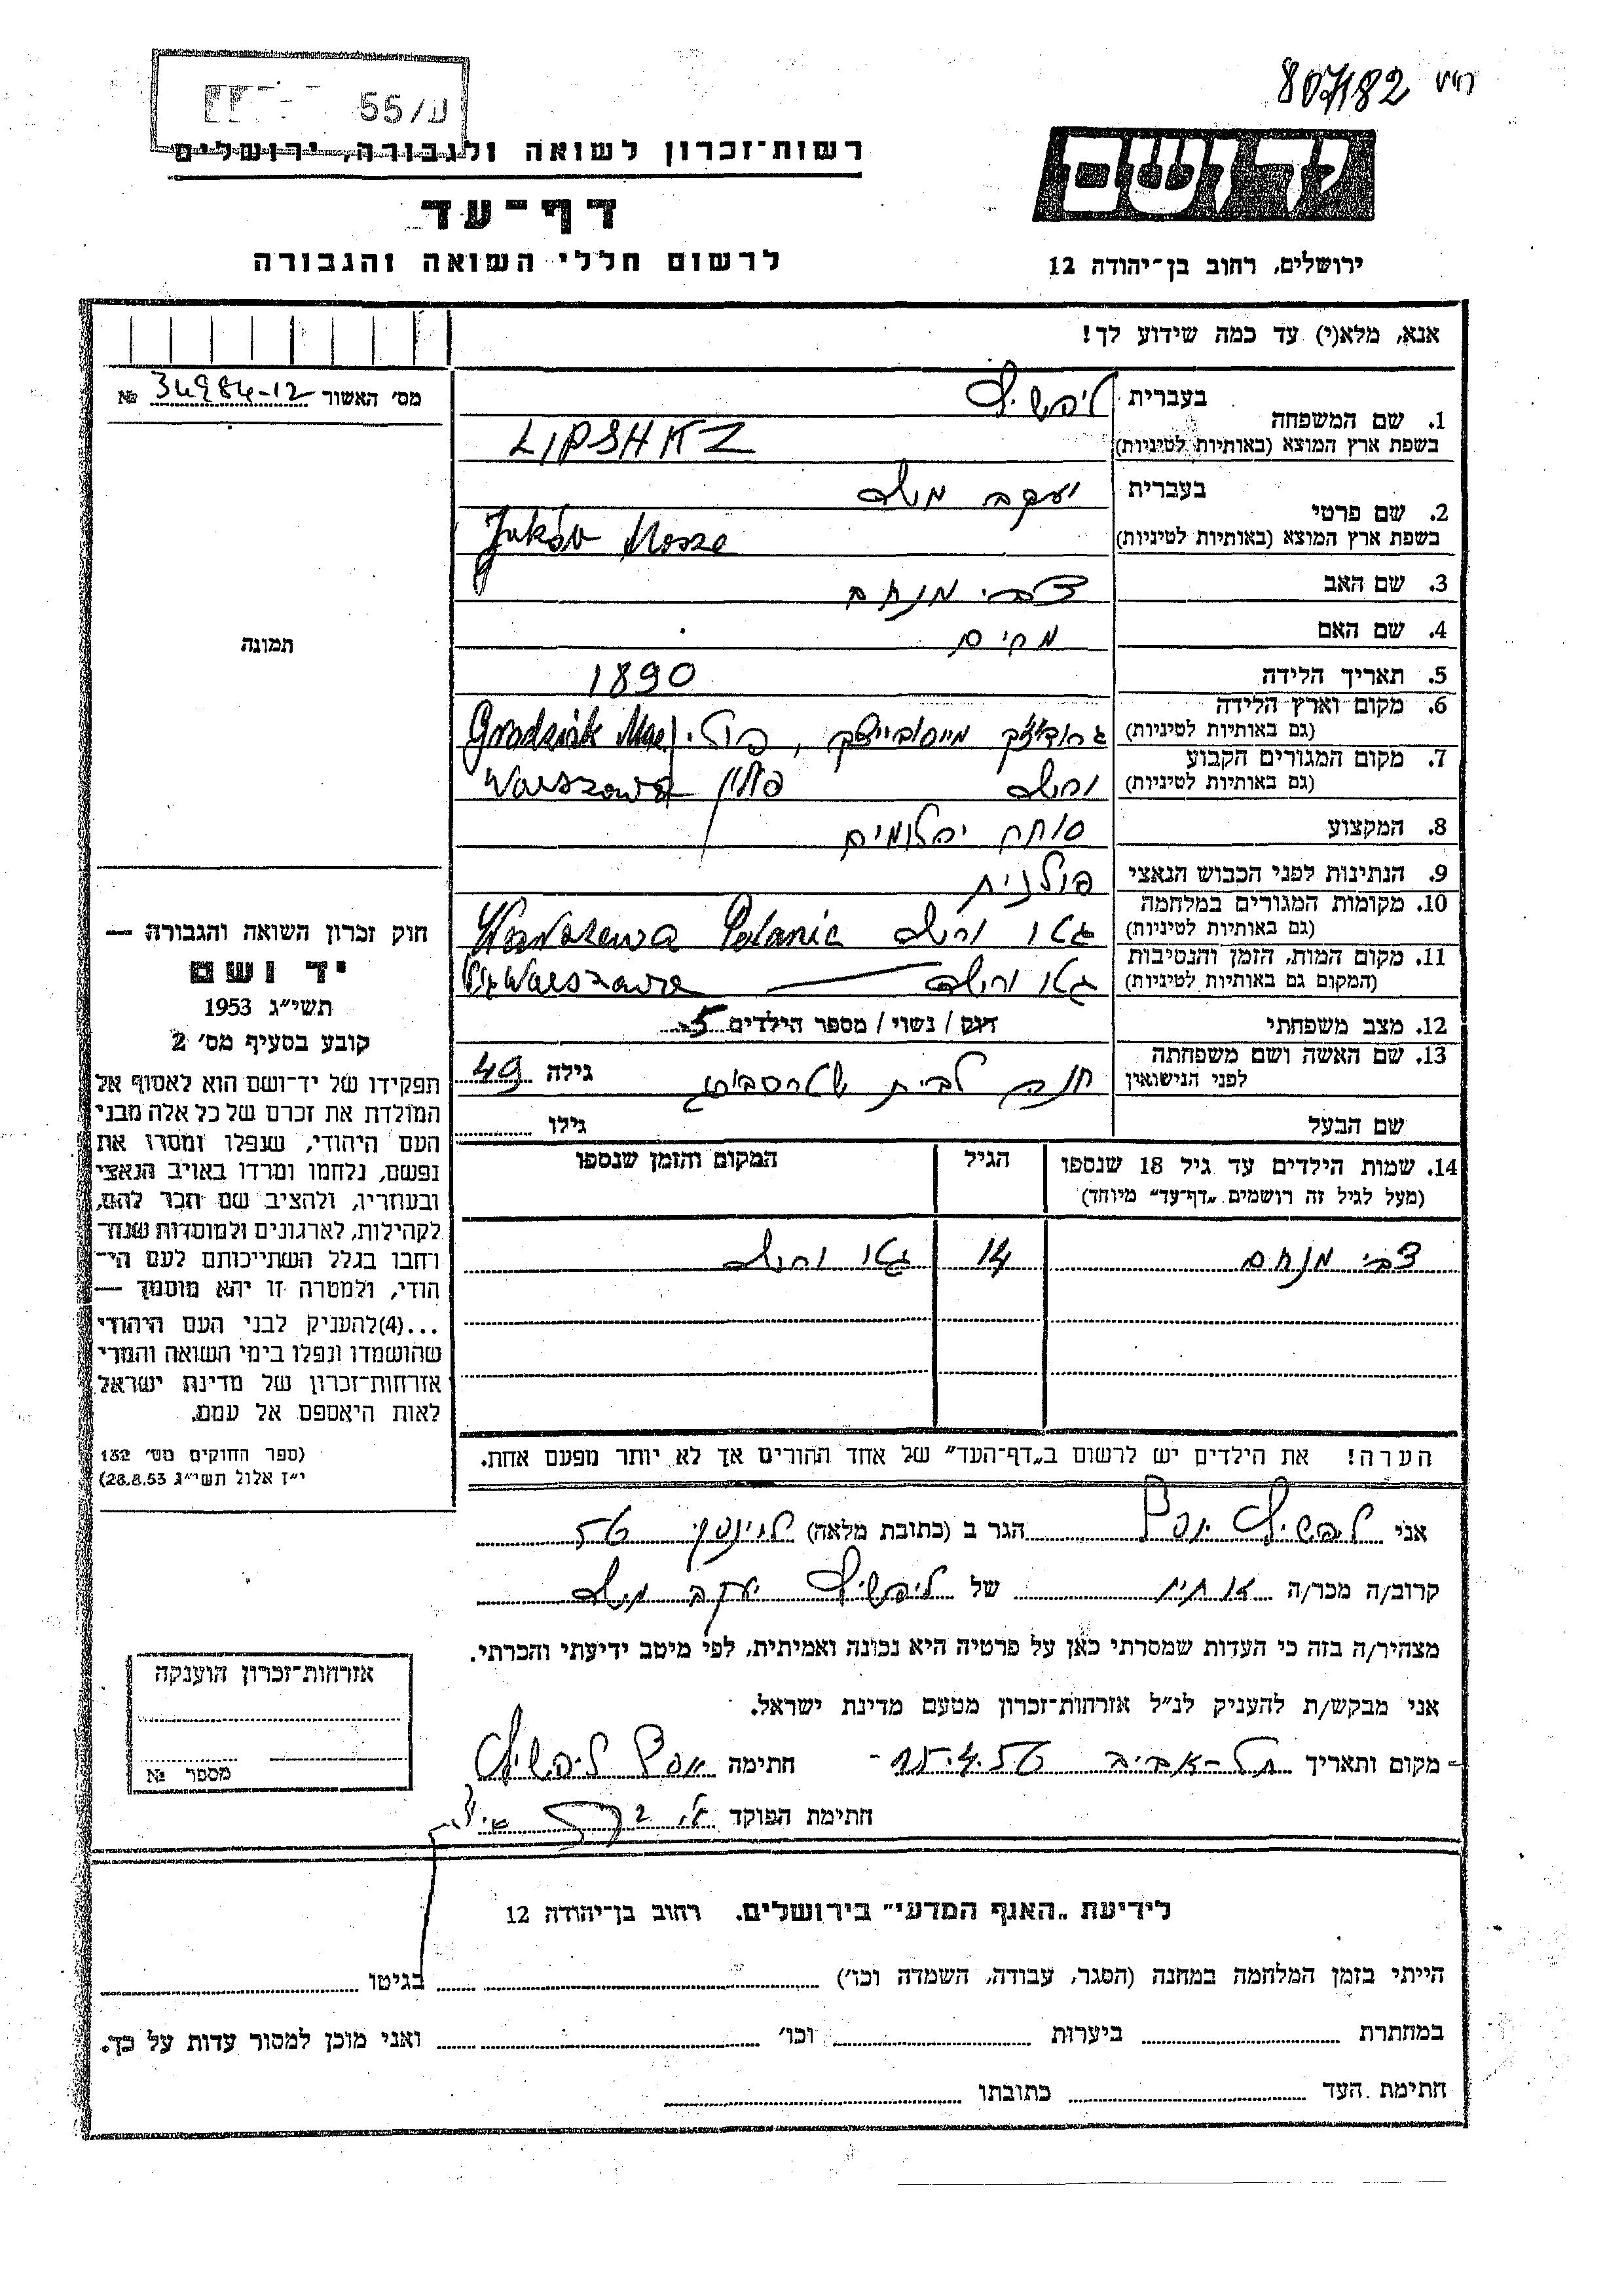 807/82
55/ע
רשות־זכרון לשואה ולגבורה, ירושלים
דף־עד
לרשום חללי השואה והגבורה
יד ושם
ירושלים, רחוב בן־יהודה 12
אנא, מלא(י) עד כמה שידוע לך!
מס׳ האשור № 34984-12
1. שם המשפחה
בעברית ליפשיץ
בשפת ארץ המוצא (באותיות לטיניות) LIPSHITZ
2. שם פרטי
בעברית יעקב משה
בשפת ארץ המוצא (באותיות לטיניות) Jakób Mosze
3. שם האב צבי מנחם
4. שם האם
תמונה
5. תאריך הלידה 1890
6. מקום וארץ הלידה
(גם באותיות לטיניות) פולין Grodzisk Maz
7. מקום המגורים הקבוע
(גם באותיות לטיניות) ורשה פולין Warszawa
8. המקצוע סוחר יהלומים
9. הנתינות לפני הכבוש הנאצי פולנית
10. מקומות המגורים במלחמה
(גם באותיות לטיניות) גטו ורשה Warszawa
11. מקום המות, הזמן והנסיבות
(המקום גם באותיות לטיניות) גטו ורשה Warszawa
12. מצב משפחתי רווק / נשוי / מספר הילדים 5
13. שם האשה ושם משפחתה
לפני הנישואין חנה לבית גילה 49
שם הבעל גילו
14. שמות הילדים עד גיל 18 שנספו
(מעל לגיל זה רושמים „דף־עד” מיוחד)
הגיל
המקום והזמן שנספו
צבי מנחם 14 גטו ורשה
הערה! את הילדים יש לרשום ב„דף־העד” של אחד ההורים אך לא יותר מפעם אחת.
חוק זכרון השואה והגבורה —
יד ושם
תשי״ג 1953
קובע בסעיף מס׳ 2
תפקידו של יד־ושם הוא לאסוף אל
המולדת את זכרם של כל אלה מבני
העם היהודי, שנפלו ומסרו את
נפשם, נלחמו ומרדו באויב הנאצי
ובעוזריו, ולהציב שם וזכר להם,
לקהילות, לארגונים ולמוסדות שנח־
רחבו בגלל השתייכותם לעם הי־
הודי, ולמטרה זו יהא מוסמך —
...(4)להעניק לבני העם היהודי
שהושמדו ונפלו בימי השואה והמרי
אזרחות־זכרון של מדינת ישראל
לאות היאספם אל עמם.
(ספר החוקים מס׳ 132
י״ז אלול תשי״ג 28.8.53)
אני ליפשיץ יוסף הגר ב (כתובת מלאה) לוינסקי 56
קרוב/ה מכר/ה של ליפשיץ יעקב משה
מצהיר/ה בזה כי העדות שמסרתי כאן על פרטיה היא נכונה ואמיתית, לפי מיטב ידיעתי והכרתי.
אני מבקש/ת להעניק לנ״ל אזרחות־זכרון מטעם מדינת ישראל.
מקום ותאריך תל-אביב 15.4.56 חתימה יוסף ליפשיץ
חתימת הפוקד
אזרחות־זכרון הוענקה
מספר №
לידיעת „האגף המדעי” בירושלים. רחוב בן־יהודה 12
הייתי בזמן המלחמה במחנה (הסגר, עבודה, השמדה וכו׳) בגיטו
במחתרת ביערות וכו׳ ואני מוכן למסור עדות על כך.
חתימת העד כתובתו